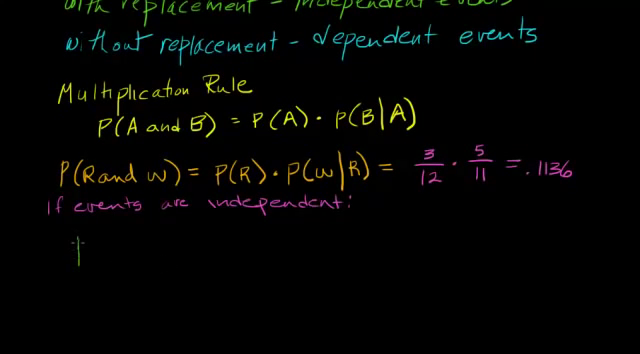 with replacement - independent events
without replacement - dependent events
Multiplication Rule
P(A and B) = P(A) · P(B|A)
P(R and W) = P(R) · P(W|R) = 3/12 · 5/11 = .1136
If events are independent: